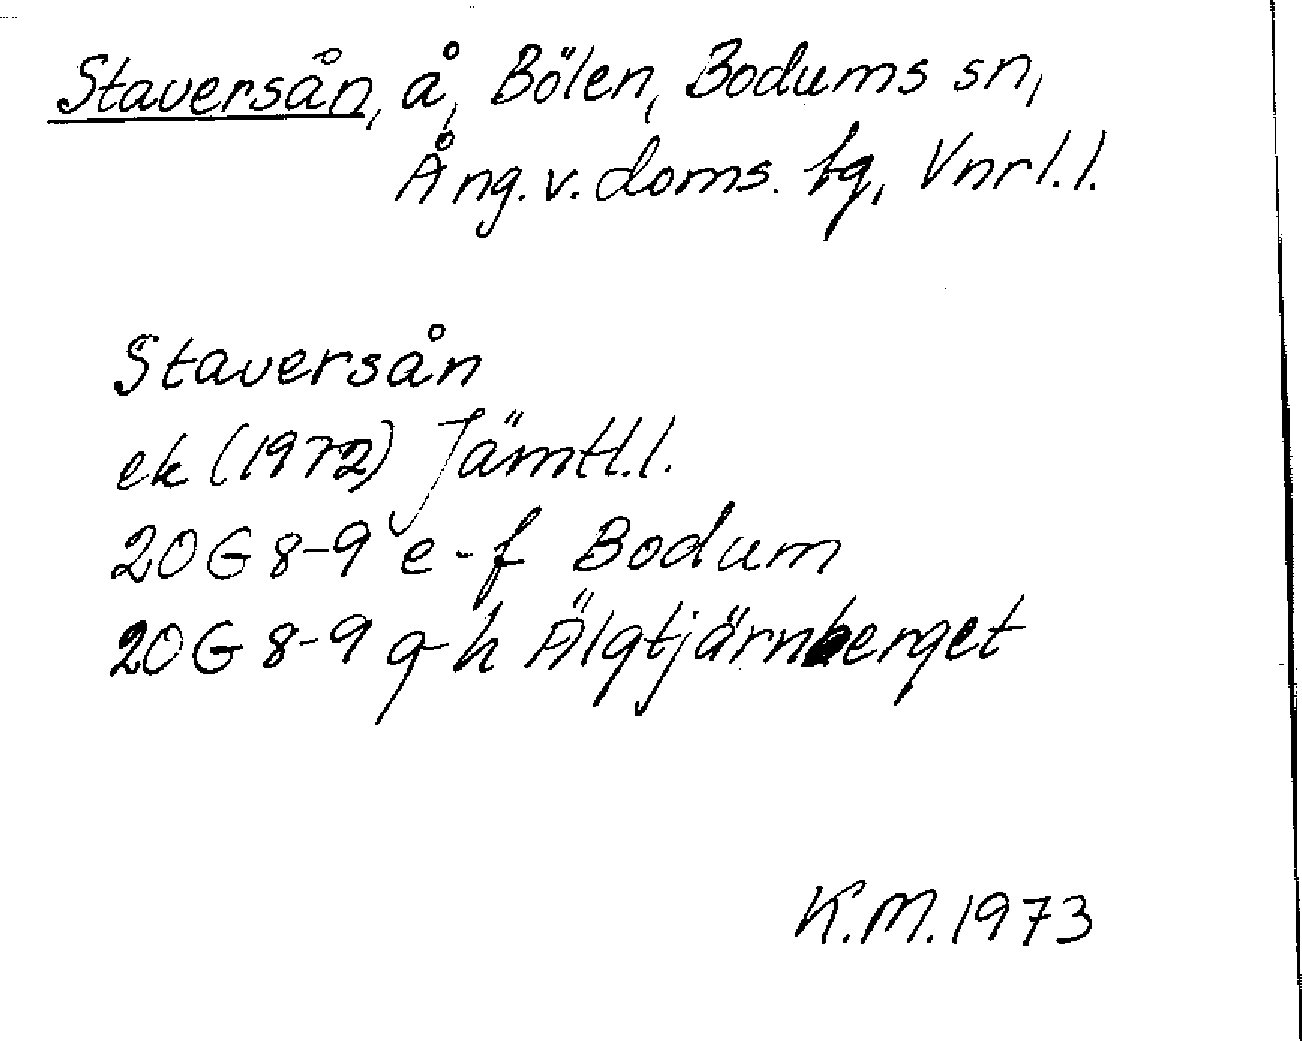 Staversån, å, Bölen, Bodums sn,
Ång.v.doms. tg, Vnrl.l.
Staversån
ek (1972) Jämtl.l.
20G 8-9 e-f Bodum
20G 8-9 g-h Älgtjärnberget
K.M.1973